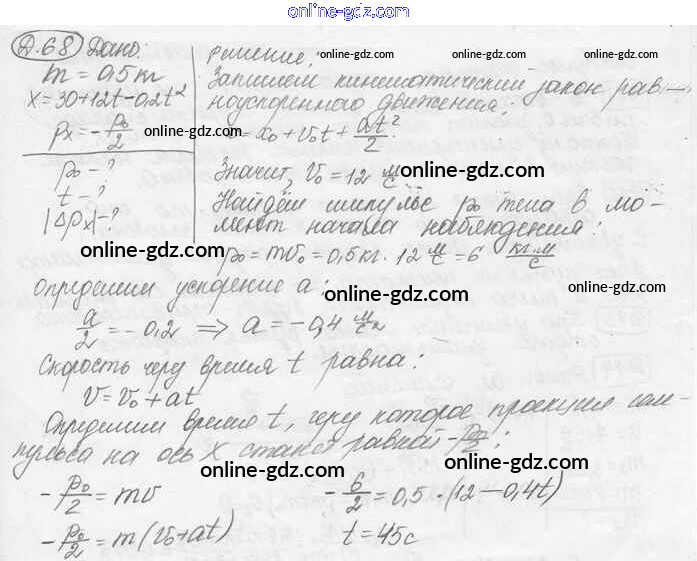 online-gdz.com
Д.68 Дано:
m = 0,5 кг
x = 30+12t-0,2t²
pₓ = -p₀/2
p₀ - ?
t - ?
|Δpₓ| - ?
Решение:
online-gdz.com online-gdz.com
Запишем кинематический закон рав-
ноускоренного движения:
online-gdz.com x = x₀ + v₀t + at²/2 online-gdz.com
Значит, v₀ = 12 м/с online-gdz.com
Найдём импульс p₀ тела в мо-
мент начала наблюдения:
online-gdz.com
p₀ = mv₀ = 0,5 кг · 12 м/с = 6 кг·м/с
Определим ускорение a: online-gdz.com
a/2 = -0,2 ⇒ a = -0,4 м/с²
online-gdz.com
Скорость через время t равна:
v = v₀ + at
online-gdz.com
Определим время t, через которое проекция им-
пульса на ось X станет равной -p₀/2:
online-gdz.com online-gdz.com
-p₀/2 = mv
-p₀/2 = m(v₀+at)
-6/2 = 0,5·(12-0,4t)
t = 45с
online-gdz.com